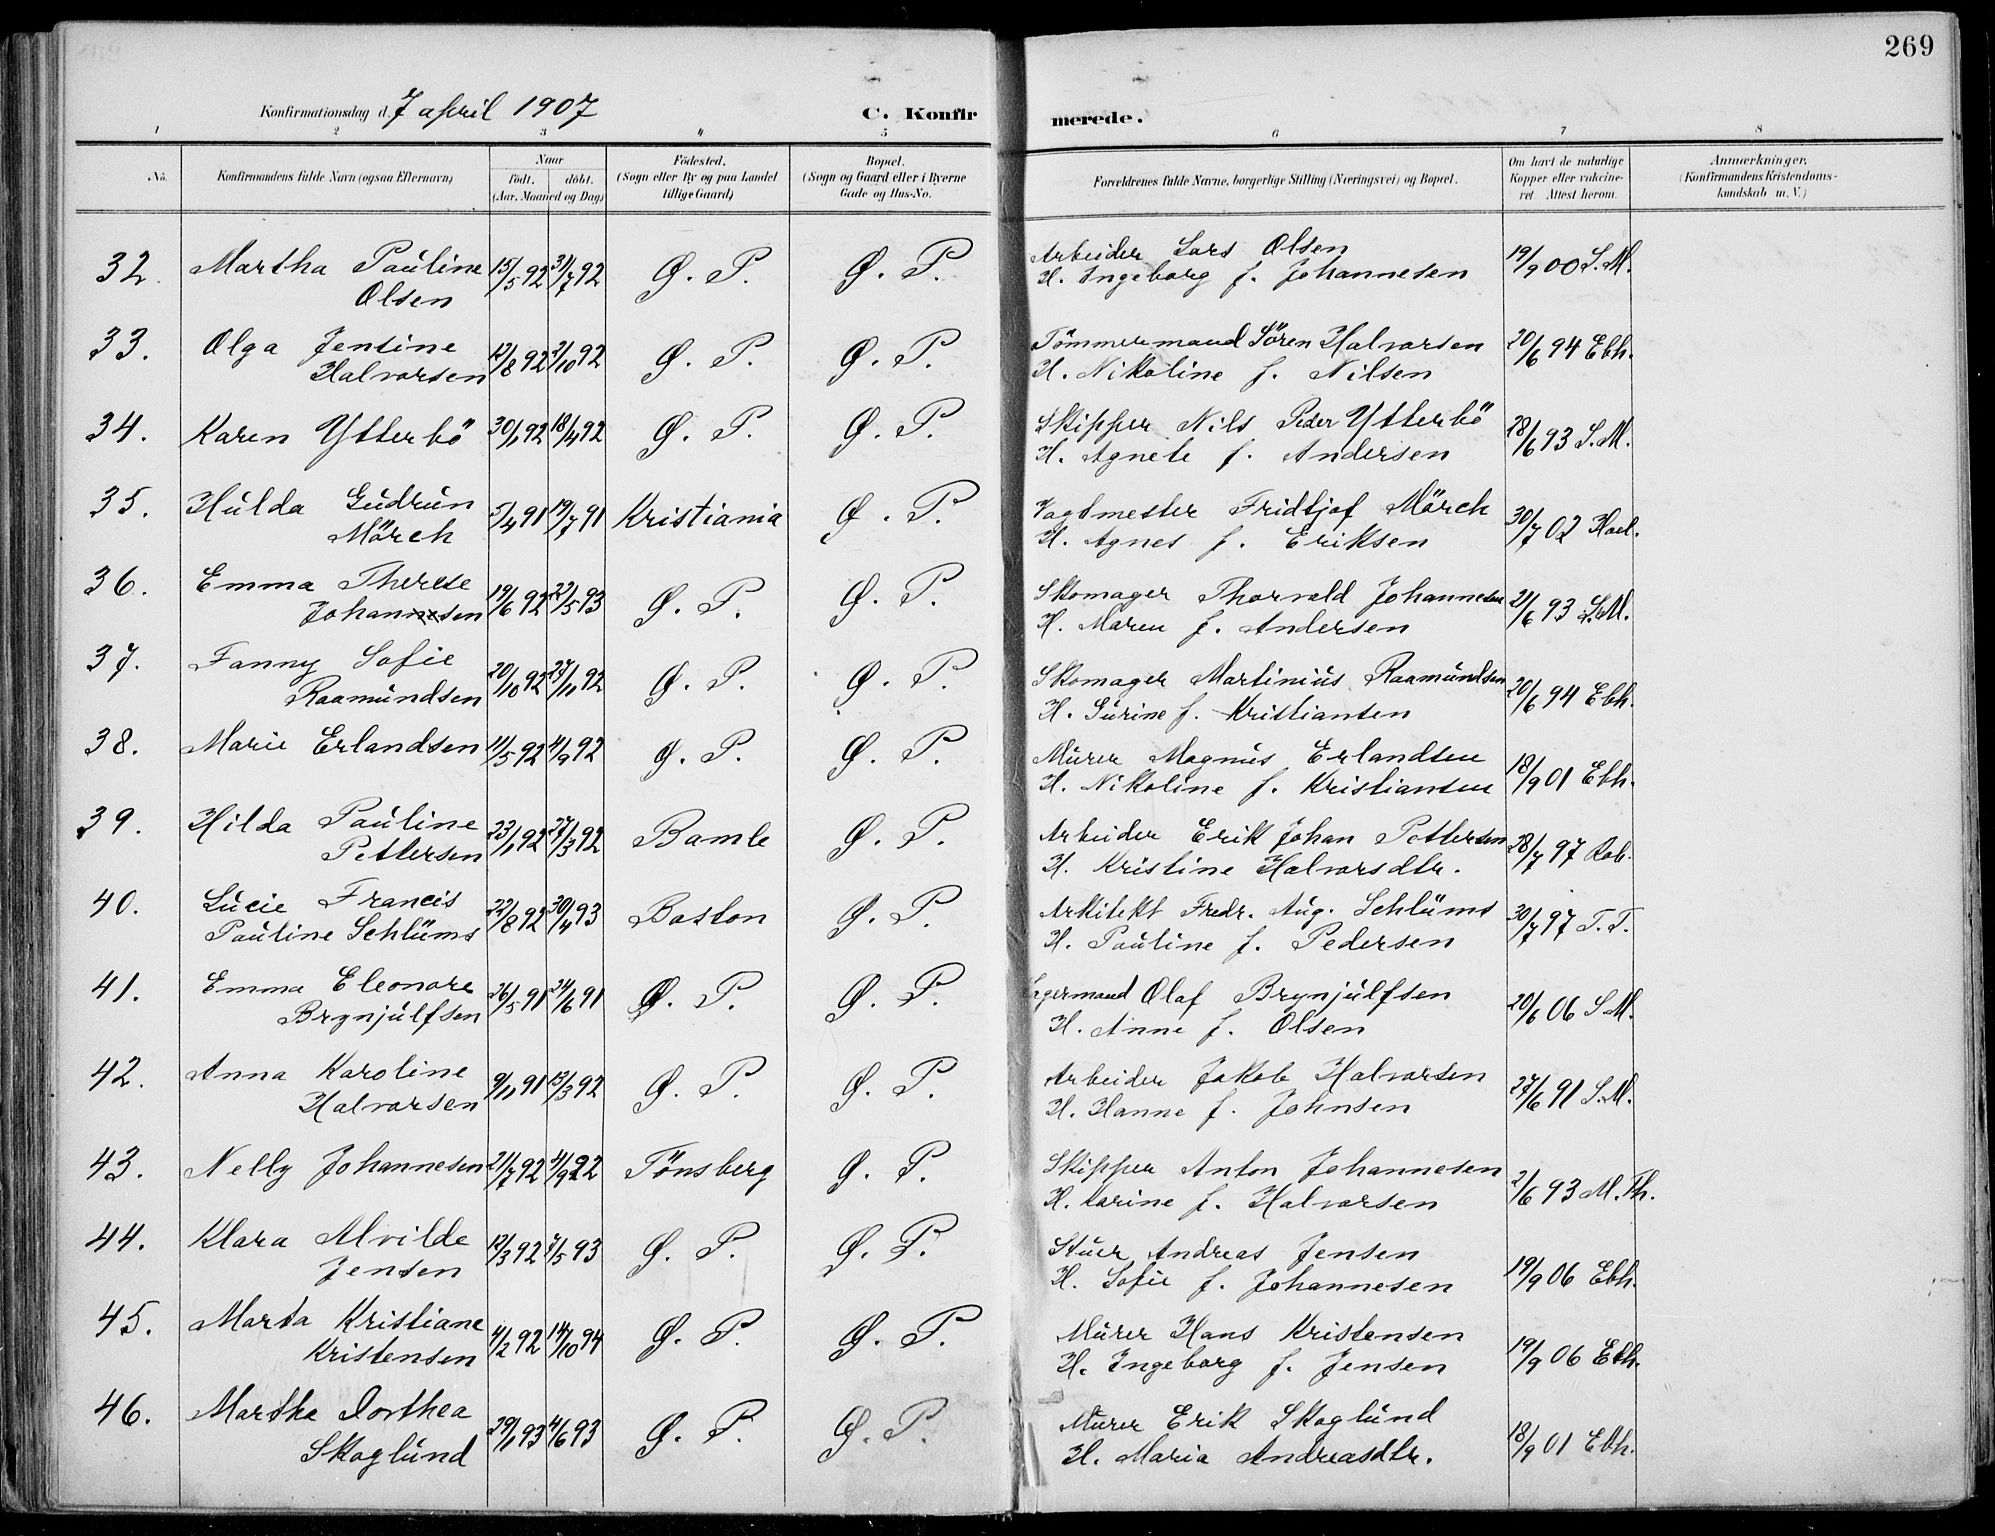 269
Konfirmationsdag d. 7 april 1907
C. Konfir
merede.
1 2 3 4 5 6 7 8
No.
Konfirmandens fulde Navn (ogsaa Efternavn)
Naar
födt. döbt.
(Aar, Maaned og Dag)
Födested.
(Sogn eller By og paa Landet
tillige Gaard)
Bopæl.
(Sogn og Gaard eller i Byerne
Gade og Hus-No.
Forældrenes fulde Navne, borgerlige Stilling (Næringsvei) og Bopæl.
Om havt de naturlige
Kopper eller vakcine-
ret Attest herom.
Anmærkninger.
(Konfirmandens Kristendoms-
kundskab m. V.)
32. Martha Pauline 15/5 92 31/7 92 Ø. P. Ø. P. Arbeider Lars Olsen 19/9 00 S. M.
Olsen H. Ingeborg f. Johannesen
33. Olga Jensine 12/8 92 2/10 92 Ø. P. Ø. P. Tömmermand Sören Halvorsen 20/6 94 Ebh.
Halvorsen H. Nikoline f. Nilsen
34. Karen Ytterbö 30/1 92 18/4 92 Ø. P. Ø. P. Skipper Nils Peder Ytterbö 28/6 93 S. M.
H. Agnete f. Andersen
35. Hulda Gudrun 5/4 91 19/7 91 Kristiania Ø. P. Vagtmester Fridtjof Mörch 30/7 02 Hoel.
Mörch H. Agnes f. Eriksen
36. Emma Therese 19/6 92 22/5 93 Ø. P. Ø. P. Skomager Thorvald Johannesen 21/6 93 S. M.
Johannesen H. Maren f. Andersen
37. Fanny Sofie 20/10 92 27/11 92 Ø. P. Ø. P. Skomager Martinius Raamundsen 20/6 94 Ebh.
Raamundsen H. Gurine f. Kristiansen
38. Marie Erlandsen 11/5 92 4/9 92 Ø. P. Ø. P. Murer Magnus Erlandsen 18/9 01 Ebh.
H. Nikoline f. Kristiansen
39. Hilda Pauline 23/1 92 27/3 92 Bamle Ø. P. Arbeider Erik Johan Pettersen 28/7 97 Rob.
Pettersen H. Kristine Halvorsdtr.
40. Lucie Francis 22/8 92 30/4 93 Boston Ø. P. Arkitekt Fredr. Aug. Schlüms 30/7 97 T. T.
Pauline Schlüms H. Pauline f. Pedersen
41. Emma Eleonore 26/5 91 24/6 91 Ø. P. Ø. P. Olaf Brynjulfsen 20/6 06 S M.
Brynjulfsen H. Anne f. Olsen
42. Anna Karoline 9/11 91 13/3 92 Ø. P. Ø. P. Arbeider Jakob Halvorsen 27/6 91 S. M.
Halvorsen H. Hanne f. Johnsen
43. Nelly Johannesen 21/7 92 4/9 92 Tönsberg Ø. P. Skipper Anton Johannesen 2/6 93 M. Th.
H. Karine f. Halvorsen
44. Klara Alvilde 12/3 92 7/5 93 Ø. P. Ø. P. Stuer Andreas Jensen 19/9 06 Ebh.
Jensen H. Sofie f. Johannesen
45. Marta Kristiane 4/2 92 14/10 94 Ø. P. Ø. P. Murer Hans Kristensen 19/9 06 Ebh.
Kristensen H. Ingeborg f. Jensen
46. Martha Dorthea 29/1 93 4/6 93 Ø. P. Ø. P. Murer Erik Skoglund 18/9 01 Ebh.
Skoglund H. Maria Andreasdtr.